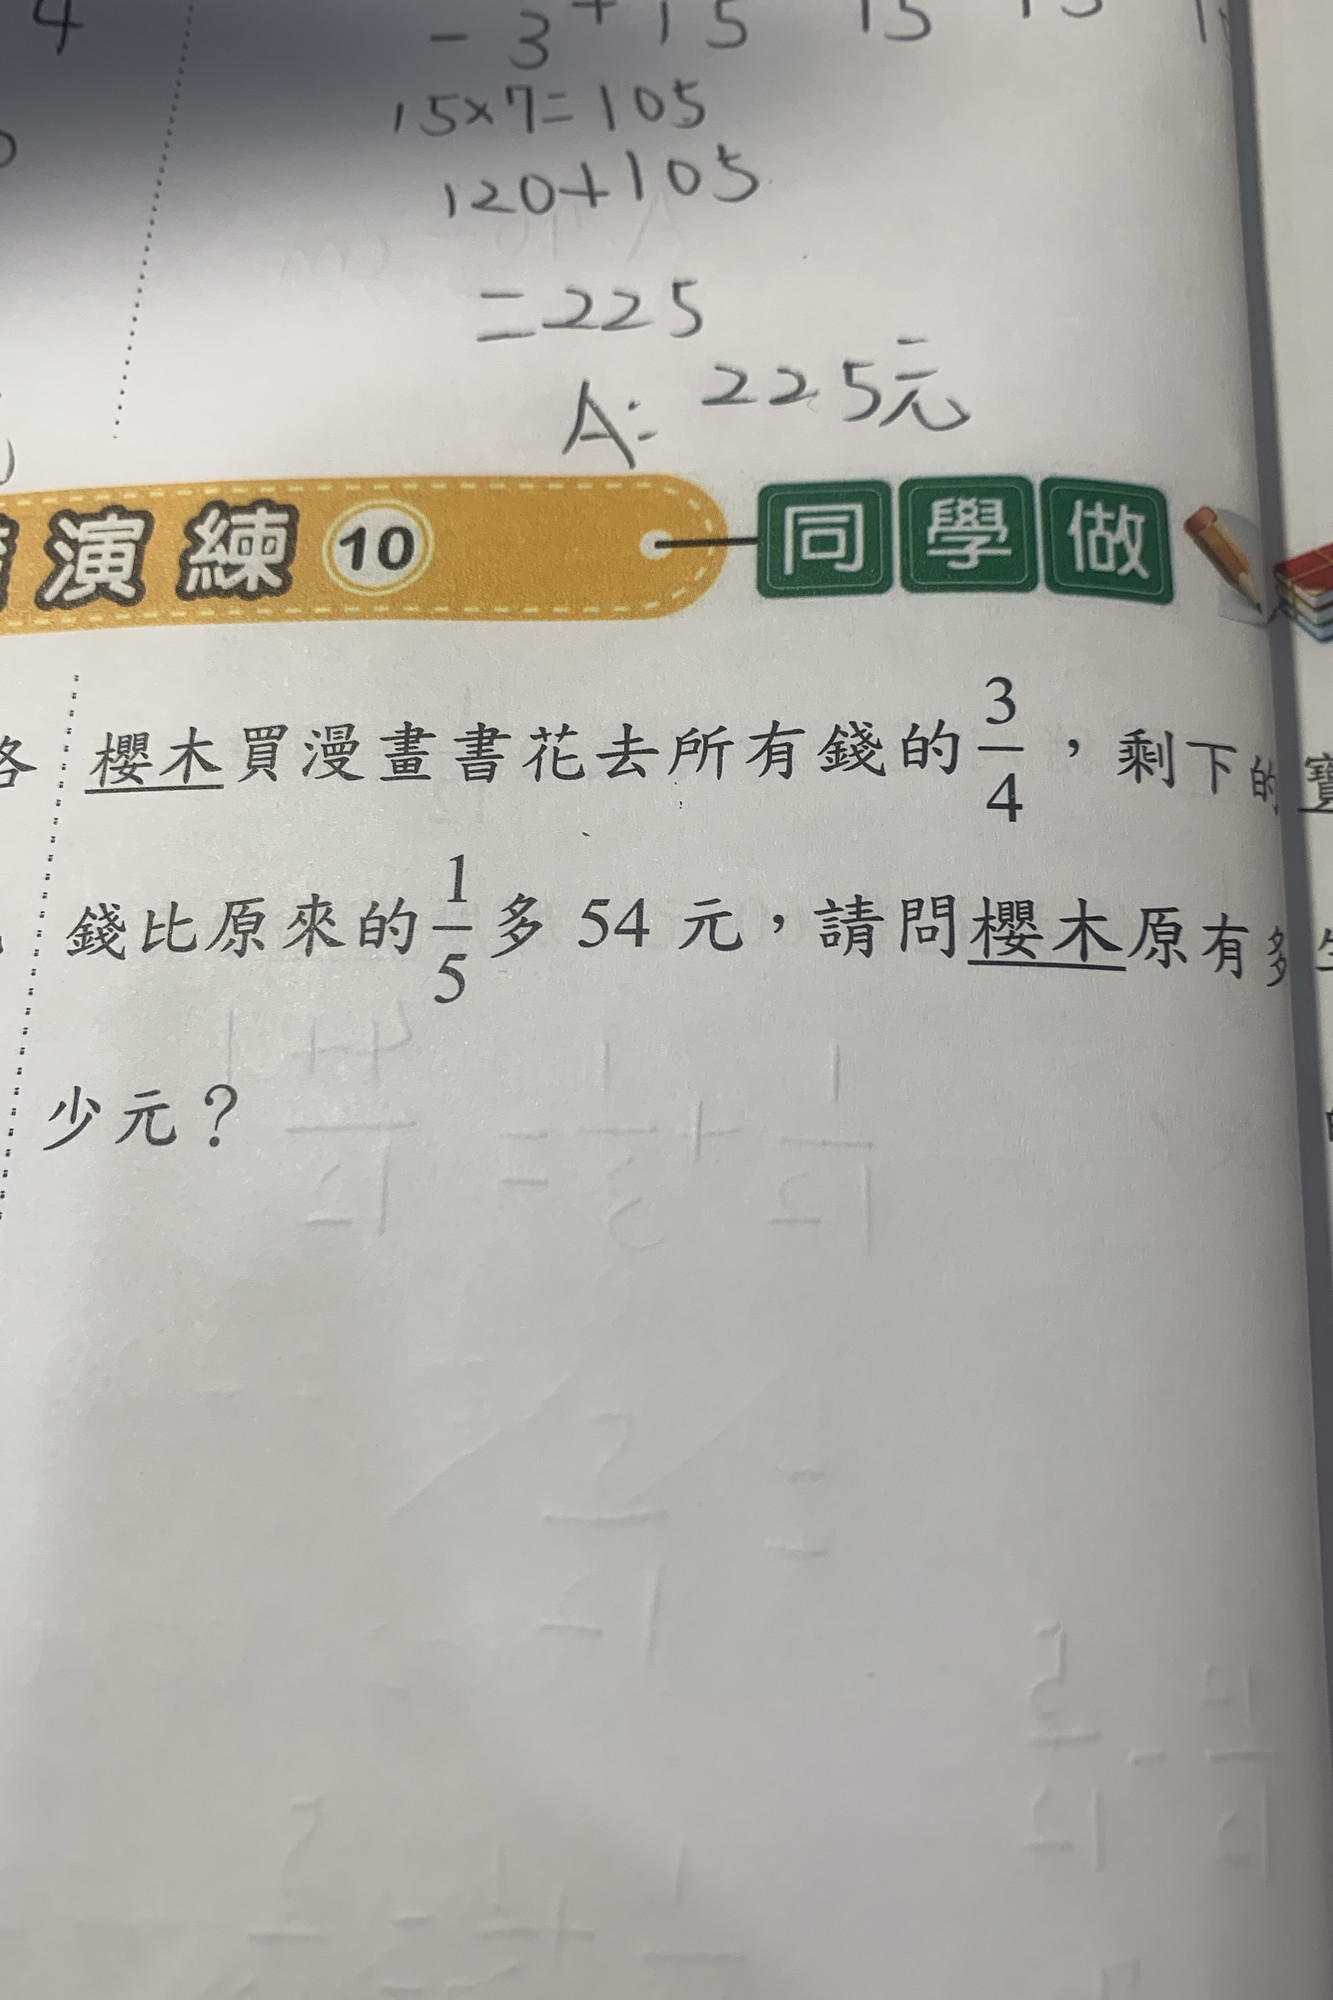 4
- 3 + 15 15 15
15×7=105
120+105
=225
A: 225元
演練 10 同學做
櫻木買漫畫書花去所有錢的3/4，剩下的
錢比原來的1/5多 54 元，請問櫻木原有多
少元？